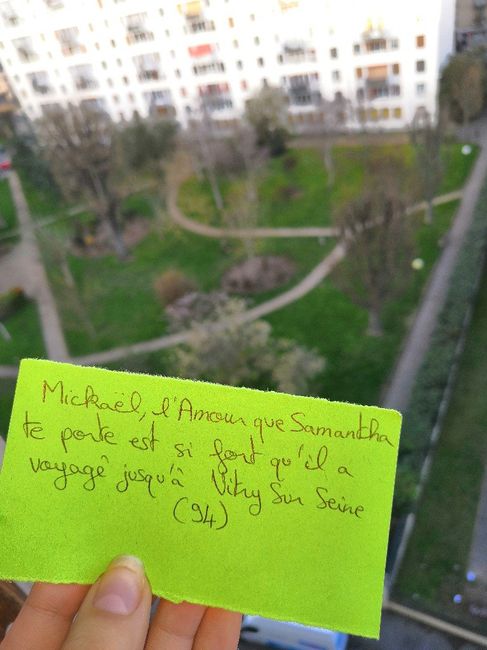 Mickaël, l'Amour que Samantha
te porte est si fort qu'il a
voyagé jusqu'à Vitry Sur Seine
(94)